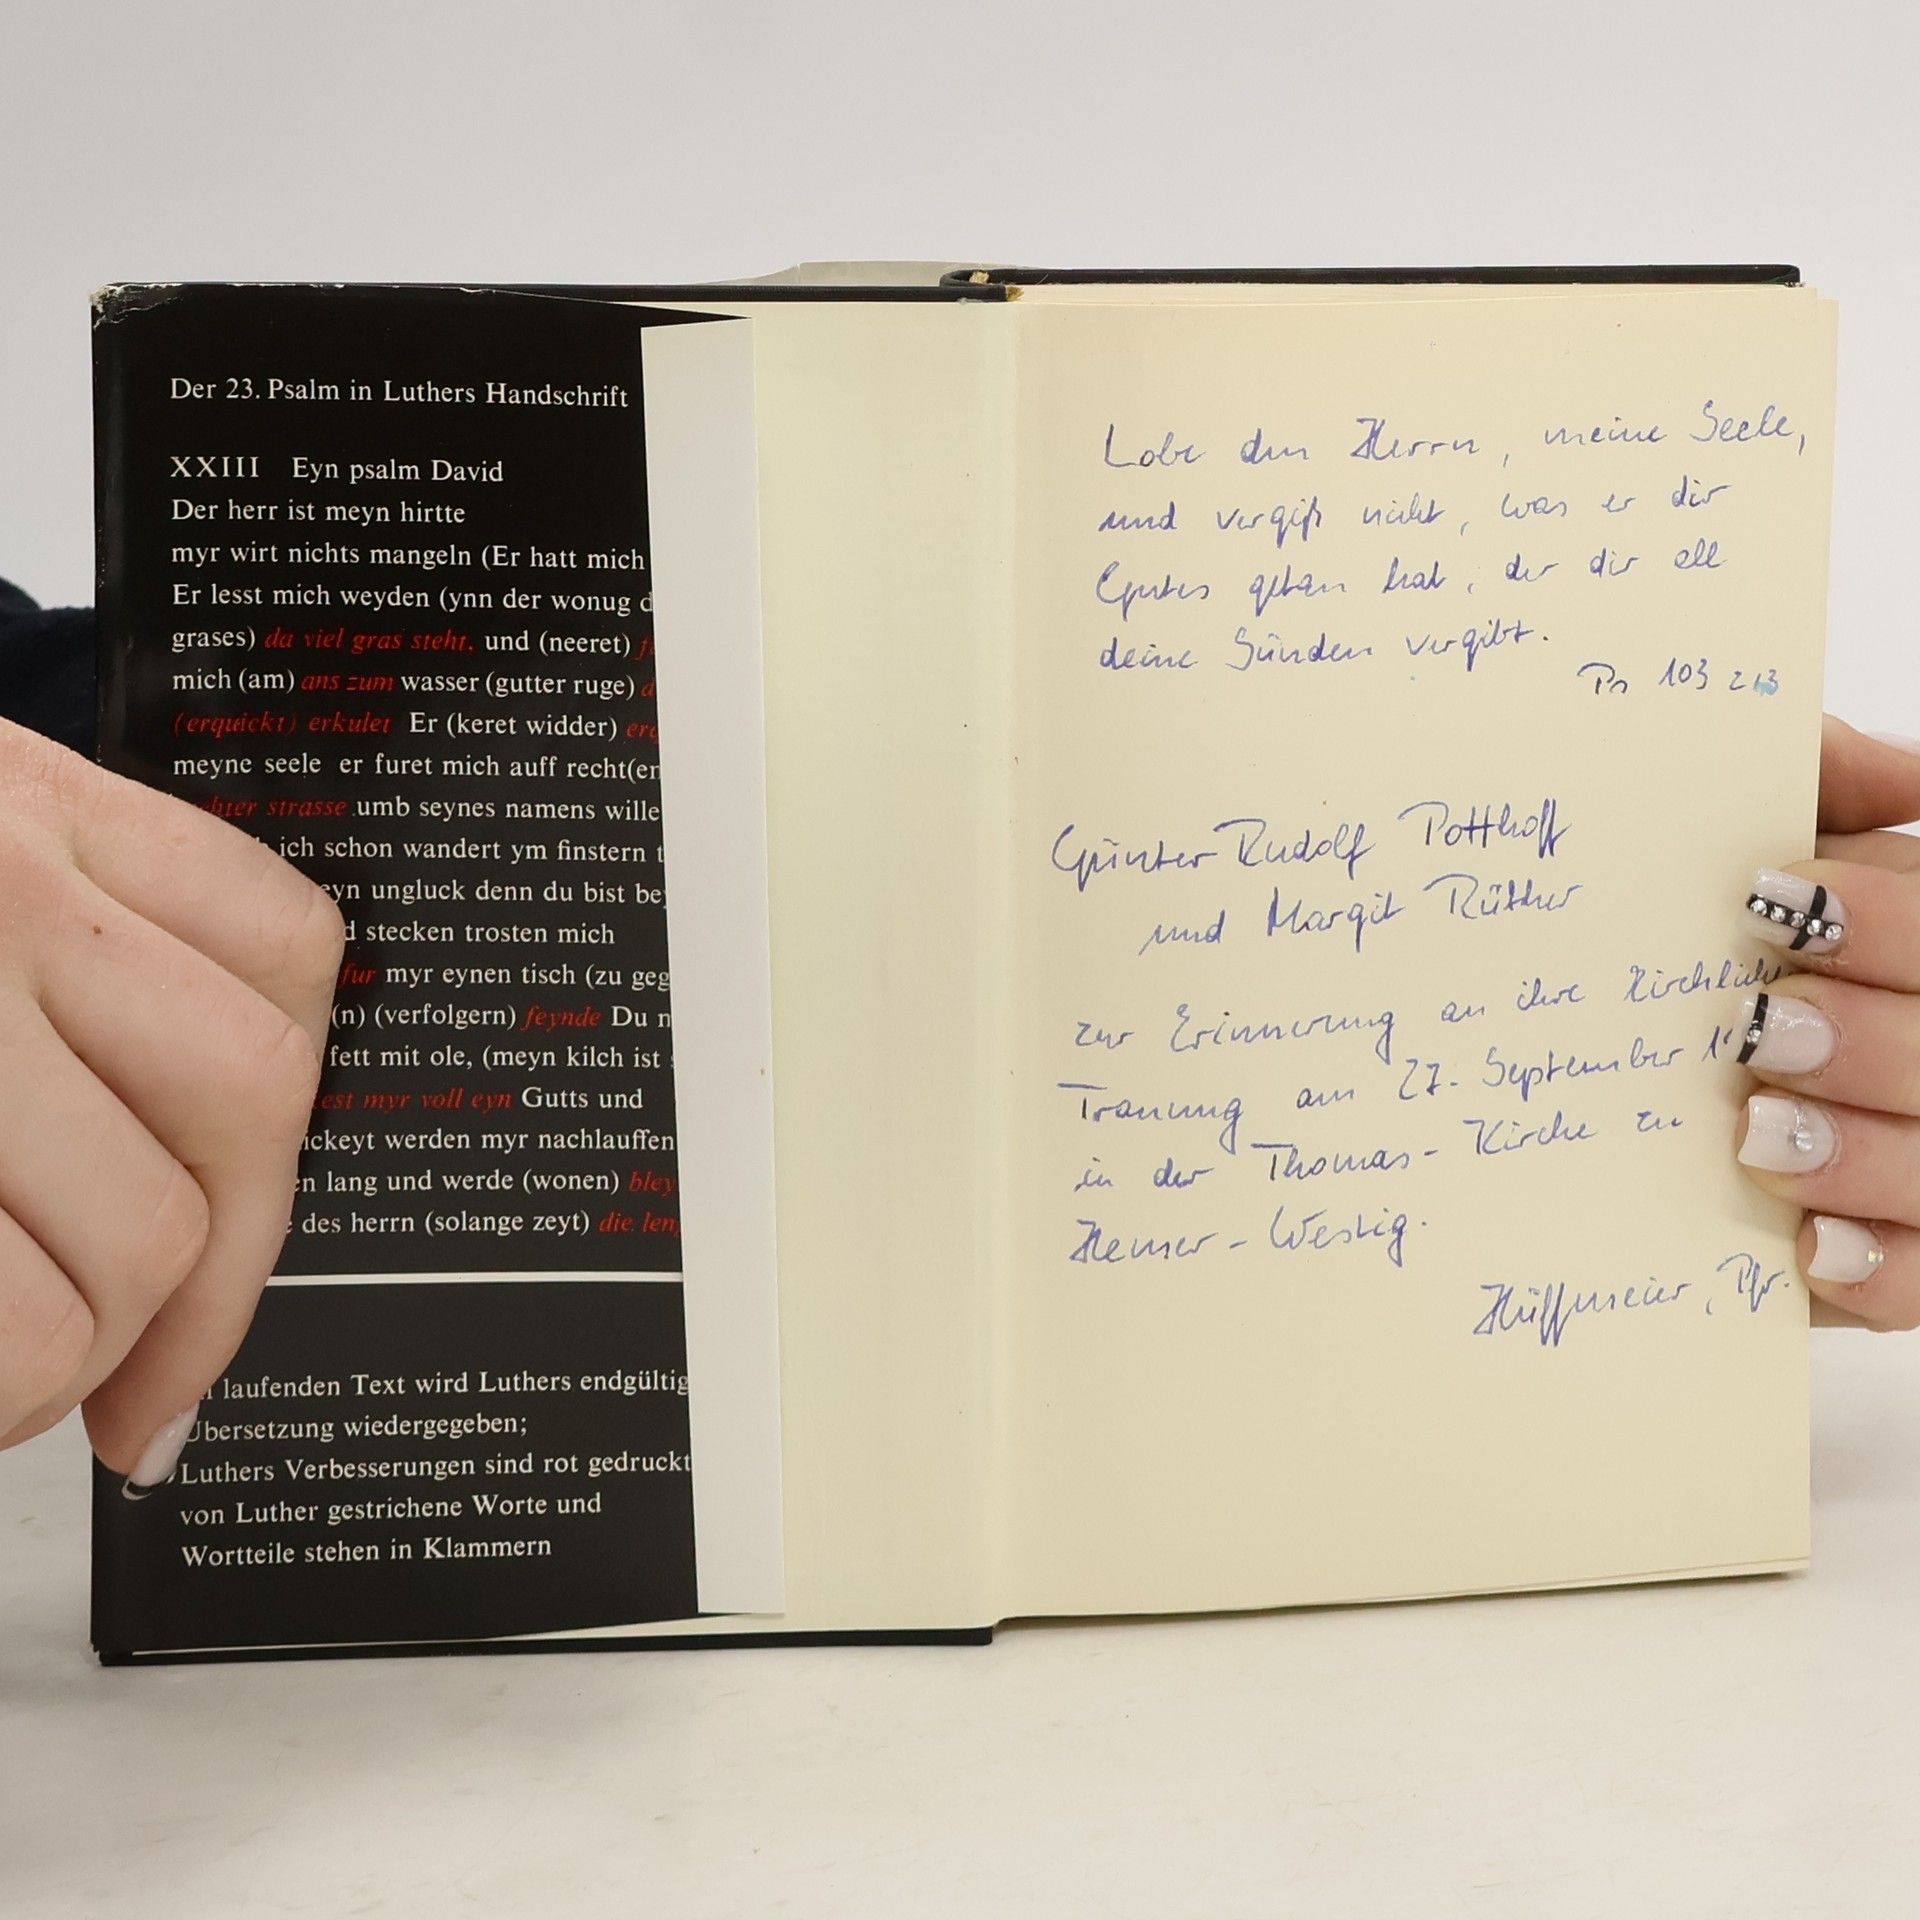 Der 23. Psalm in Luthers Handschrift
XXIII Eyn psalm David
Der herr ist meyn hirtte
myr wirt nichts mangeln (Er hatt mich
Er lesst mich weyden (ynn der wonug
grases) da viel gras steht, und (neeret)
mich (am) ans zum wasser (gutter ruge)
(erquickt) erkulet Er (keret widder)
meyne seele er furet mich auff recht(er
strasse umb seynes namens wille
ich schon wandert ym finstern
ungluck denn du bist
stecken trosten mich
fur myr eynen tisch (zu
(n) (verfolgern) feynde Du
fett mit ole, (meyn kilch ist
myr voll eyn Gutts und
werden myr nachlauffen
lang und werde (wonen)
des herrn (solange zeyt) die
laufenden Text wird Luthers
Übersetzung wiedergegeben;
Luthers Verbesserungen sind rot gedruckt
von Luther gestrichene Worte und
Wortteile stehen in Klammern
Lobe den Herrn, meine Seele,
und vergiß nicht, was er dir
Gutes getan hat, der dir all
deine Sünden vergibt.
Ps 103
Günter Rudolf Potthoff
und Margit Rüther
zur Erinnerung an ihre
Trauung am 27. September
in der Thomas-Kirche zu
Hemer-Westig.
Hüffmeier, Pfr.